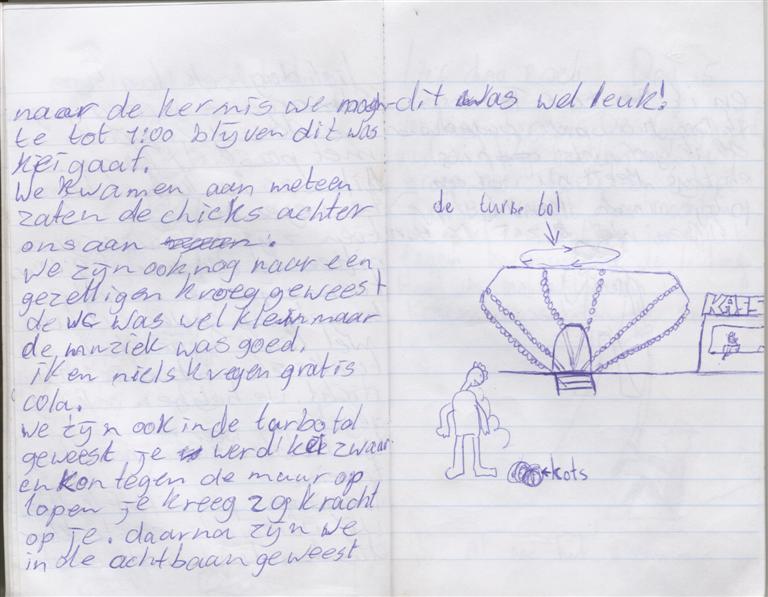 naar de kermis we moch-dit was wel leuk!
te tot 1:00 blijven dit was
kei gaaf.
We kwamen aan meteen
zaten de chicks achter
ons aan
we zijn ook nog naar een
gezelligen kroeg geweest
de wc was wel klein maar
de muziek was goed.
ik en niels kregen gratis
cola.
we zijn ook in de turbo tol
geweest je werd kei zwaar
en kon tegen de muur op
lopen je kreeg 2g kracht
op je. daarna zijn we
in de achtbaan geweest
de turbo tol
KAFE
←kots